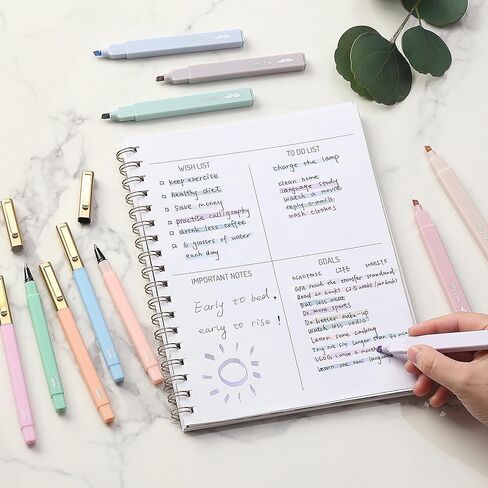 WISH LIST
keep exercise
healthy diet
save money
practise calligraphy
drink less coffee
6 glasses of water
each day
TO DO LIST
charge the lamp
clean home
language study
watch a movie
reply e-mails
wash clothes
IMPORTANT NOTES
Early to bed,
early to rise!
GOALS
ACADEMIC LIFE HABITS
GPA reach the transfer standard
Read 20 books
Eat less meat
Do more sports
Do better make-up
Watch less vedio
Learn some cooking
Try out
VLOG once a month
Learn one new